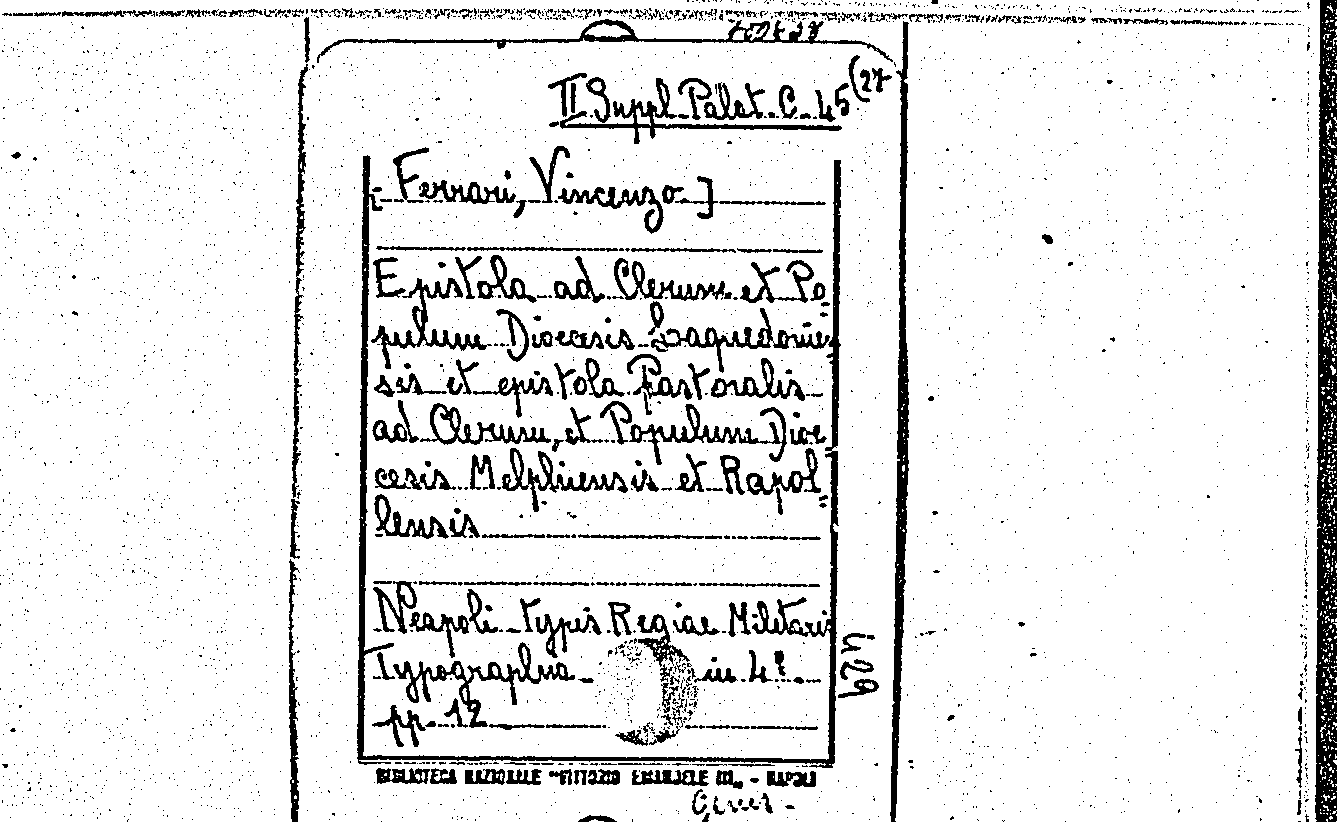 II Suppl. Palat. C. 45 (27
[Ferrari, Vincenzo]
Epistola ad Clerum et Po-
pulum Diocesis Laquedonien-
sis et epistola Pastoralis
ad Clerum, et Populum Dioe-
cesis Melphiensis et Rapol-
lensis
Neapoli typis Regiae Militaris
Typographia - in 4º.
pp. 12
429
BIBLIOTECA NAZIONALE "VITTORIO EMANUELE III" - NAPOLI